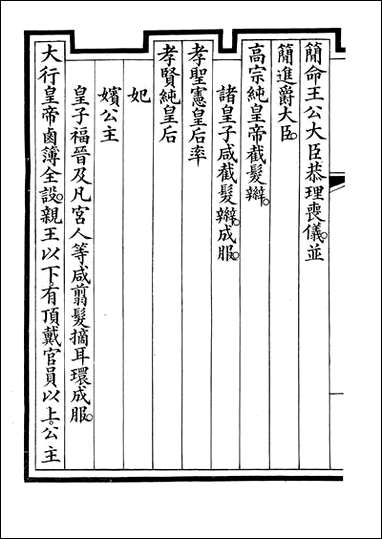 簡命王公大臣恭理喪儀並
簡進爵大臣
高宗純皇帝截髮辮
諸皇子咸截髮辮成服
孝聖憲皇后率
孝賢純皇后
妃
嬪公主
皇子福晉及凡宮人等咸翦髮摘耳環成服
大行皇帝鹵簿全設親王以下有頂戴官員以上公主